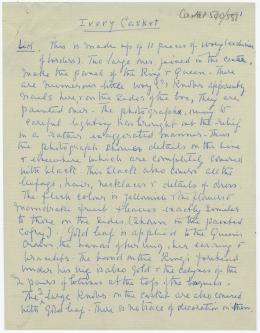 Casket 540/581
Ivory Casket
Lid. This is made up of 11 pieces of ivory (exclusive
of borders). Two large ones, joined in the centre,
make the panel of the King & Queen. There
are numerous little ivory (?) knobs apparently
made here & on the sides of the box, they are
painted over. The photographs, owing to
careful lighting has brought out the relief
in a rather exaggerated manner. Thus
the photograph shows details on the line
& elsewhere which are completely covered
with black. This black also covers all the
foliage, hair, necklaces & details of dress.
The flesh colour is yellowish & the flowers
monochrome greenish &
to those on the ends (shown in the painted
copy). Gold leaf is applied to the Queen's
crown the hands of her
bracelets. The band on the King's forehead
under his wig is also gold & the calyxes of the
2 pairs of lotuses at the top of the
The large knobs on the casket are also covered
with gold leaf. There is no trace of decoration on them